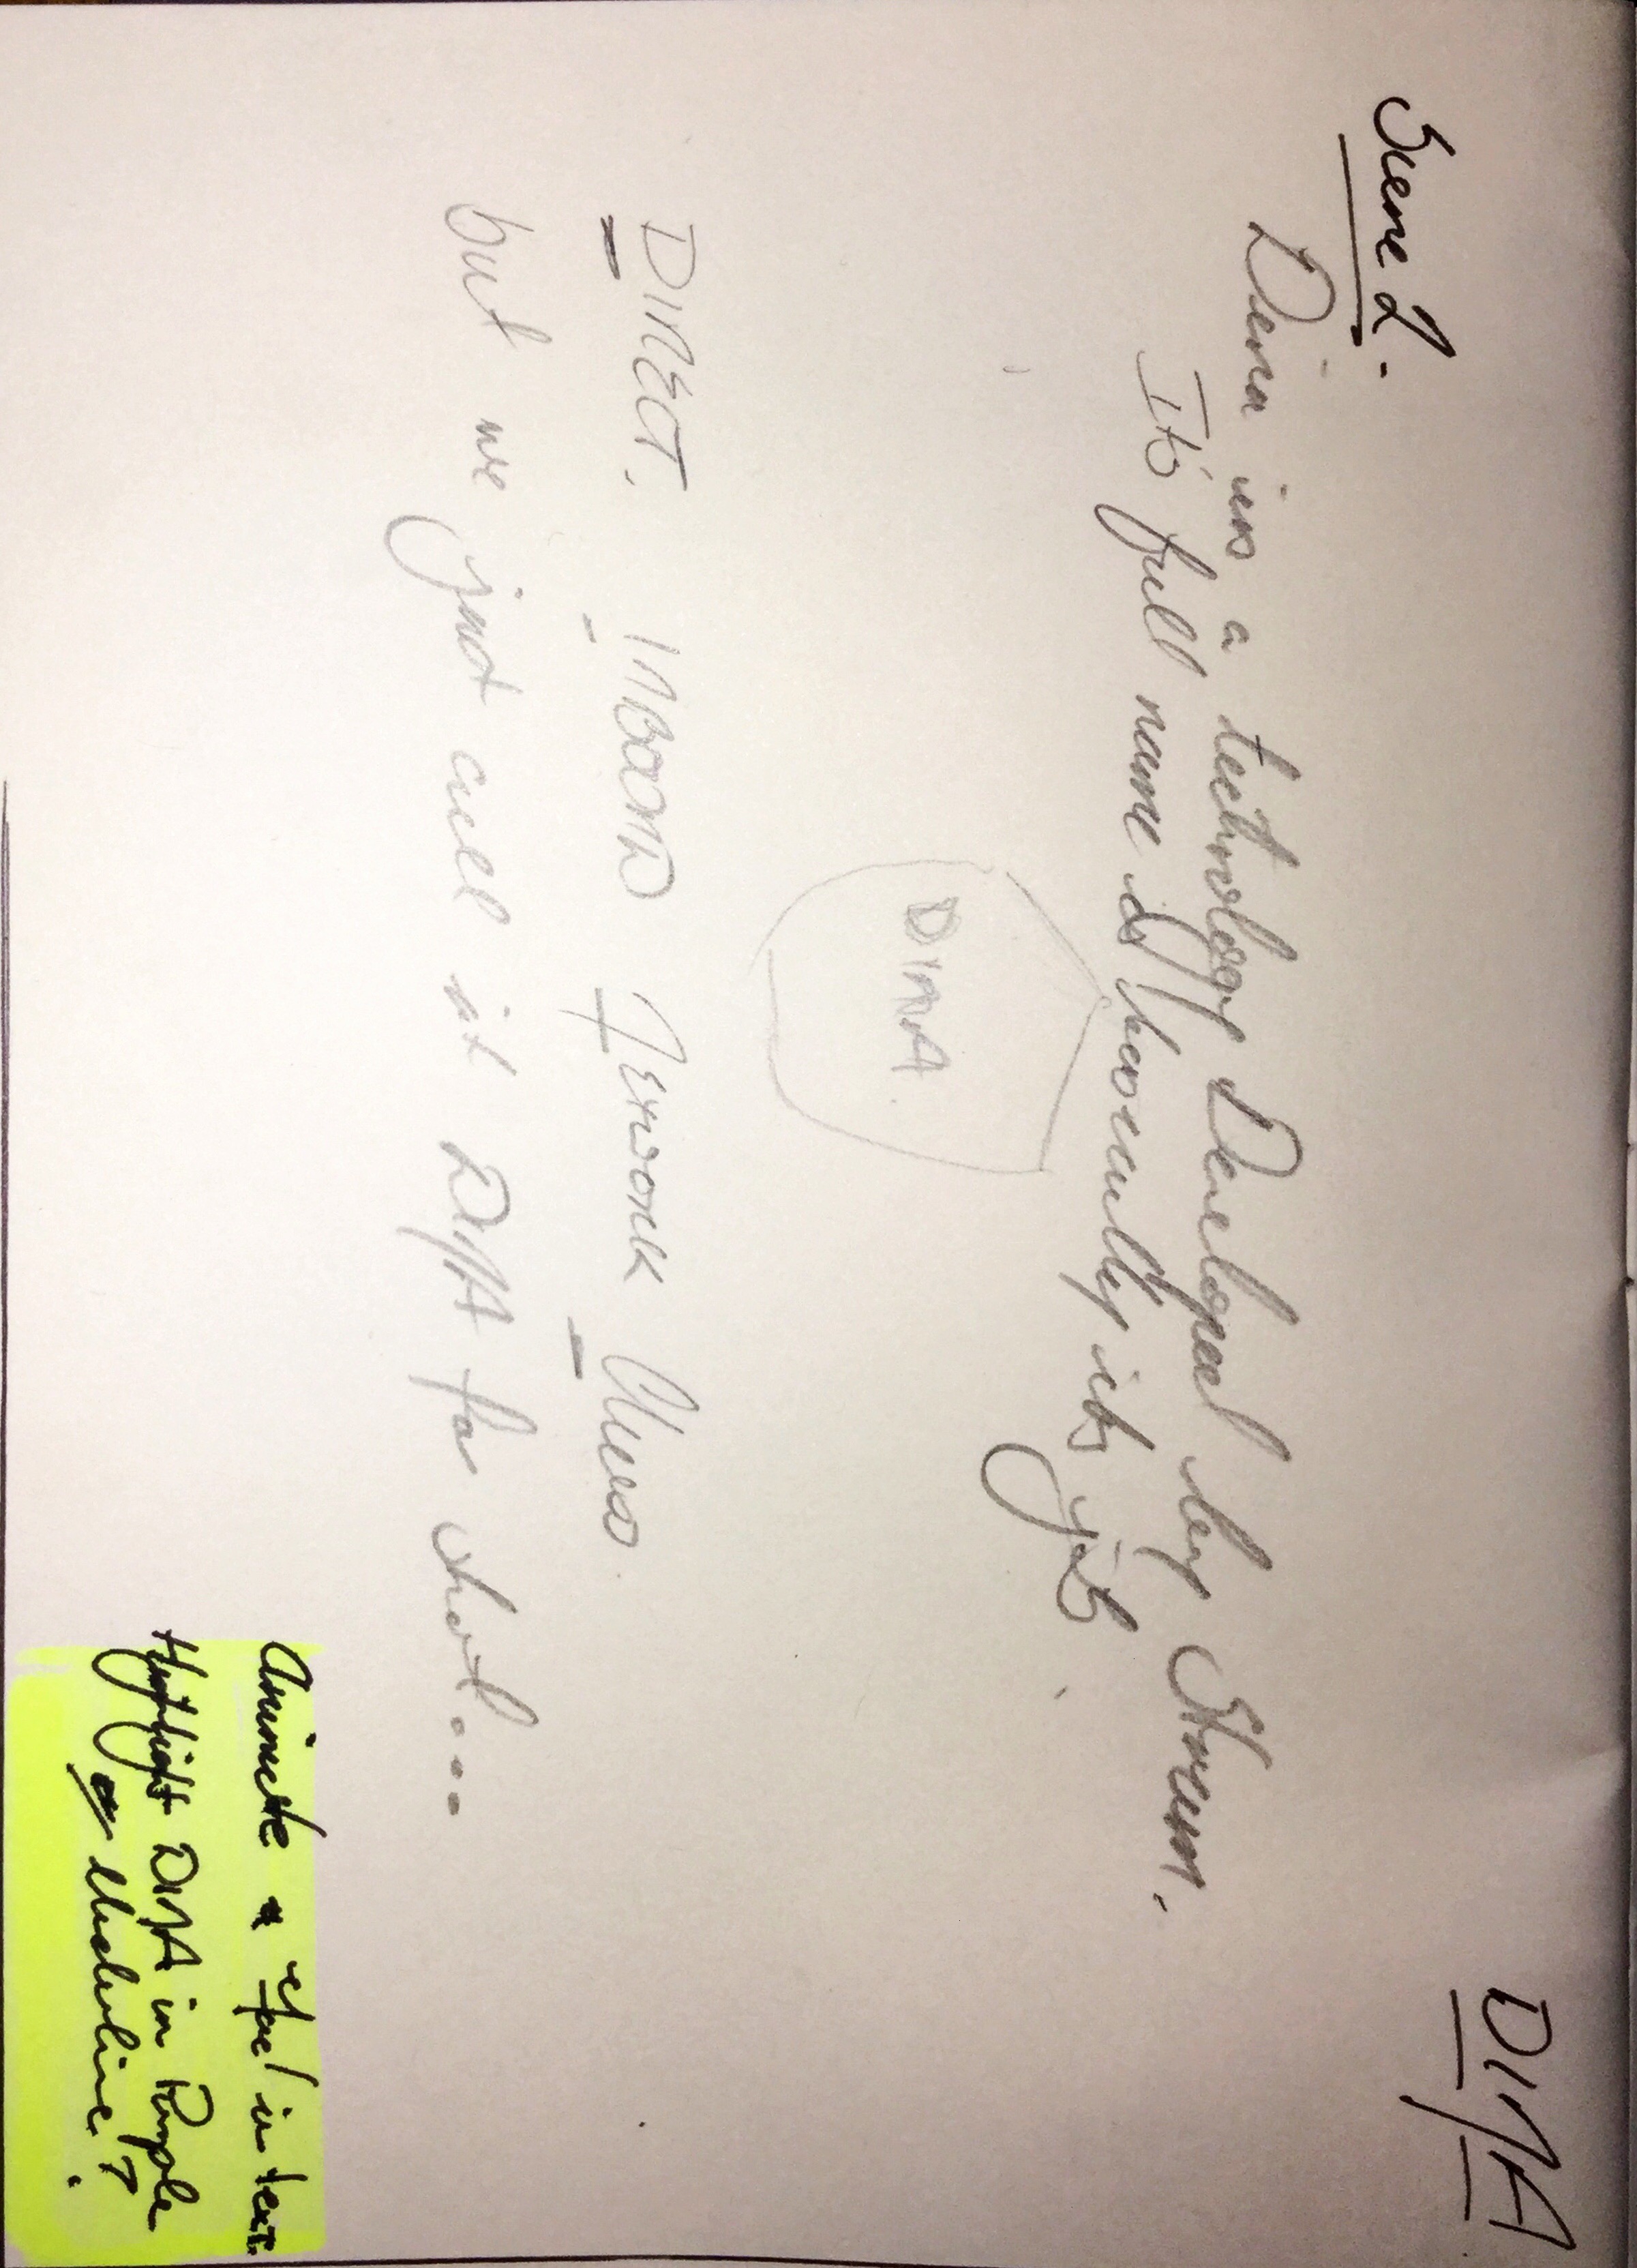 Scene 2.
DINA
Dina is a technology Developed by Strum.
It's full name is basically its job
DINA
DIRECT. INBOARD NETWORK
but we just call it DINA for short...
Animate a effect in text.
Hightlight DINA in Purple
or Underline?